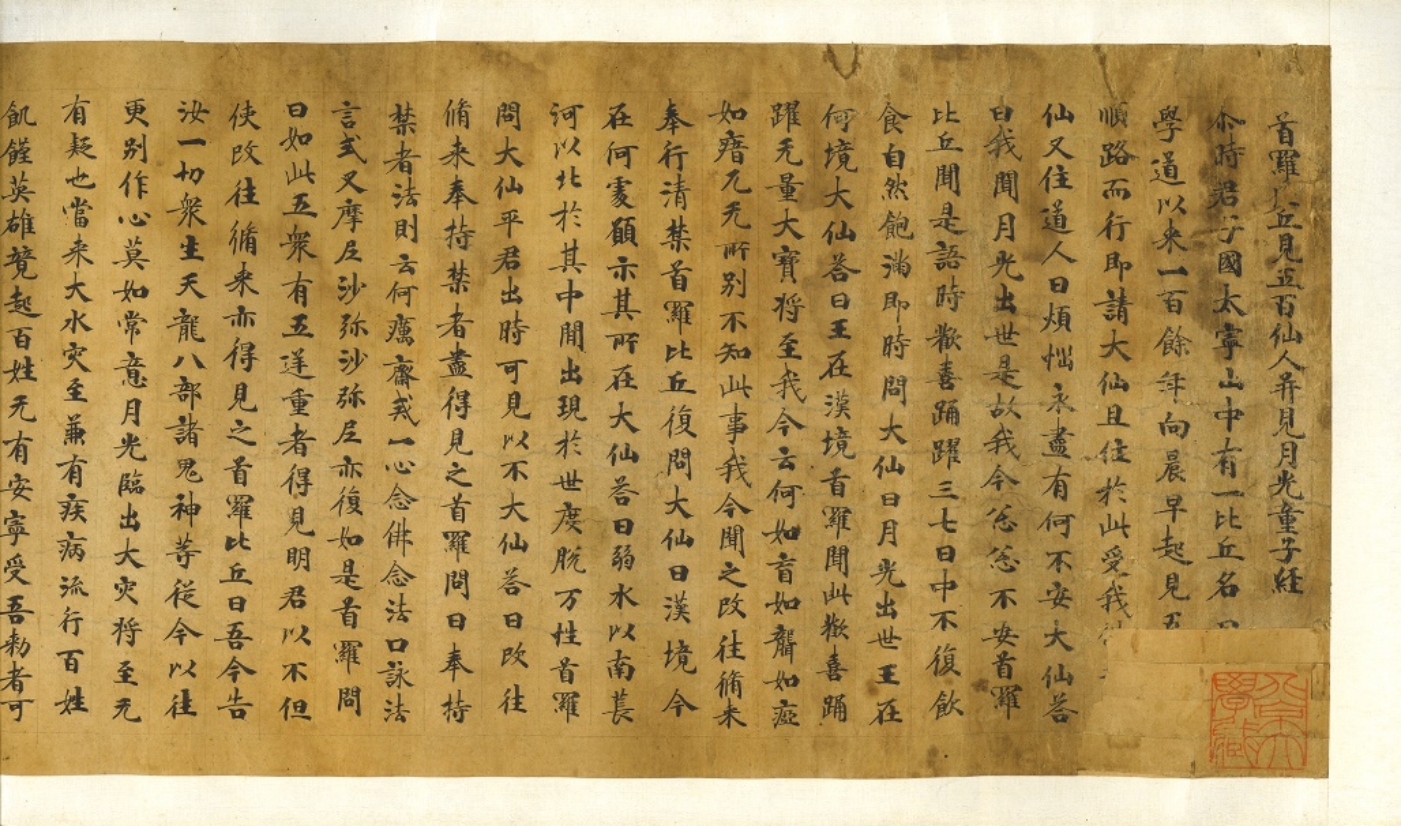 首羅比丘見五百仙人并見月光童子経
尒時君子國太寧山中有一比丘名曰
學道以来一百餘年向晨早起見五
順路而行即請大仙且住於此受我
仙又住道人曰煩惱永盡有何不安大仙荅
曰我聞月光出世是故我今忩忩不安首羅
比丘聞是語時歡喜踊躍三七日中不復飲
食自然飽滿即時問大仙曰月光出世王在
何境大仙荅曰王在漢境首羅聞此歡喜踊
躍无量大寶将至我今云何如盲如聾如
如瘖兀无所别不知此事我今聞之改往脩来
奉行清禁首羅比丘復問大仙曰漢境今
在何處願示其所在大仙荅曰弱水以南萇
河以北於其中間出現於世度脱万性首羅
問大仙平君出時可見以不大仙荅曰改往
脩来奉持禁者盡得見之首羅問曰奉持
禁者法則云何癘齋戒一心念佛念法口詠法
言式叉摩尼沙弥沙弥尼亦復如是首羅問
曰如此五衆有五逆重者得見明君以不但
使改往脩来亦得見之首羅比丘曰吾今告
汝一切衆生天龍八部諸鬼神等従今以往
更别作心莫如常意月光臨出大灾将至无
有疑也當来大水灾至兼有疾病流行百姓
飢饉英雄競起百姓无有安寧受吾勑者可